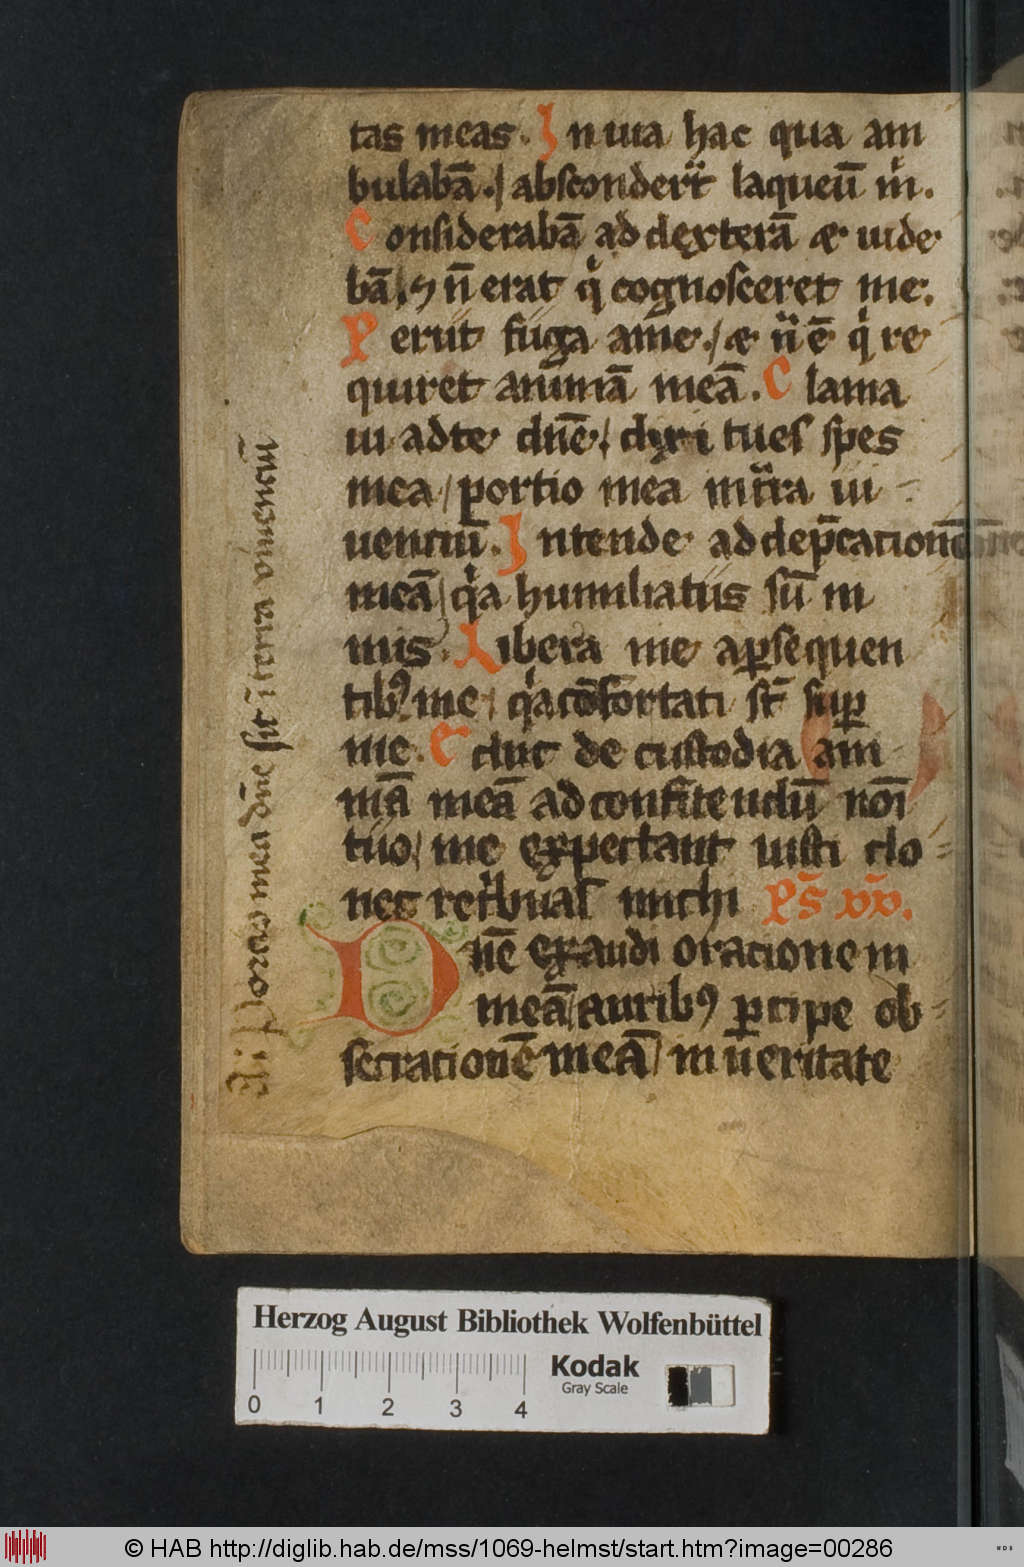 tas meas. In uia hac qua am
bulabā./ absconderṫt laqueū m̍.
Considerabā ad dexterā & uide
bā/ ⁊ n̄ erat q̍ cognosceret me.
Periit fuga a me./ & n̄ ē q̍ re
quiret animā meā. Clama
ui ad te dn̄e/ dixi tu es spes
mea/ portio mea in tr̄ra ui-
uentiū. Intende ad dep̄cationē
meā/ q̍a humiliatus sū ni
mis. Libera me a ꝑsequen
tibꝰ me/ q̍a cōfortati st̄ suꝑ
me. Educ de custodia ani-
mā meā ad confitendū noī
tuo/ me expectant iusti do-
nec ret̍buas michi Ps̄
Dn̄e exaudi orationem
meā/ auribꝰ ꝑcipe ob-
secrationē meā/ in ueritate
Portio mea dn̄e sit ī terra viuenciū
Herzog August Bibliothek Wolfenbüttel
Kodak
Gray Scale
0 1 2 3 4
© HAB http://diglib.hab.de/mss/1069-helmst/start.htm?image=00286